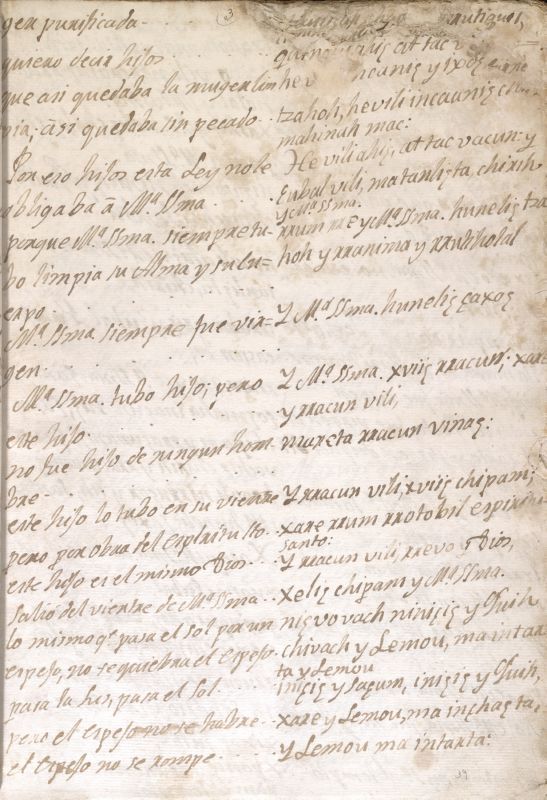 3
gen purificada.
quiero decir hijos
que asi quedaba la muger lim
pia, āsi quedaba sin pecado.
Por eso hijos esta Ley no le
obligaba ā Mª SSma.
porque Mª SSma. siempre tu-
bo limpia su Alma y su Cu-
erpo
Mª SSma. siempre fue vir-
gen.
Mª SSma. tubo hijo; pero
este hijo.
no fue hijo de ningun hom
bre.
este hijo lo tubo en su vientre
pero por obra del Espiritu Sto.
este hijo es el mismo Dios
salio del vientre de Mª SSma.
lo mismo qe. pasa el sol por un
espejo, no se quiebra el espejo.
pasa la luz, pasa el sol.
pero el espejo no se habre
el espejo no se rompe
antiguos,
tzahoh, he vili incaanis
mahinah mac:
He vili ahis, at tac vacun y
Eubal vili, matanlis ta, chirih
y Mª SSma.
rrum rre y Mª SSma. hunelis tza
hoh y rranima y rrutiholal
Y Mª SSma. hunelis çaxos
Y Mª SSma. xviis rracun; xare
y rracun vili,
mareta rracun vinas:
Y rracun vili, xviis chipam;
xare rrum rrotobil espiritu
santo:
Y rracun vili, rrevo y Dios,
xelis chipam y Mª SSma.
nis vo vach ninisis y Quih
chivach y Lemou, ma intax
ta y Lemou
inisis y saqum, inisis y Quih,
xare y Lemou, ma inchas ta,
Y Lemou ma intaxta:
19